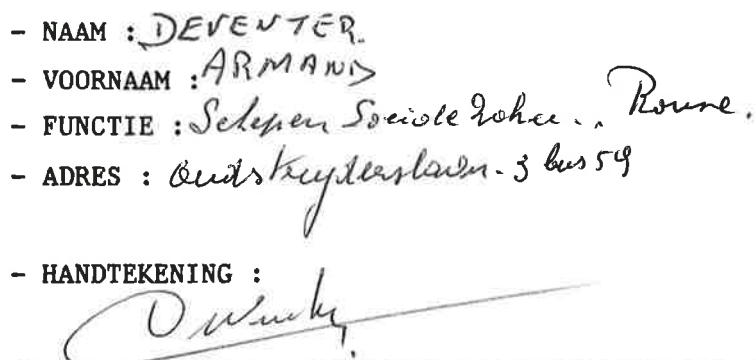 - NAAM : DEVENTER.
- VOORNAAM : ARMAND
- FUNCTIE : Schepen Sociale Zaken .. Ronse.
- ADRES : Oudstrijderslaan. 3 bus 59
- HANDTEKENING :